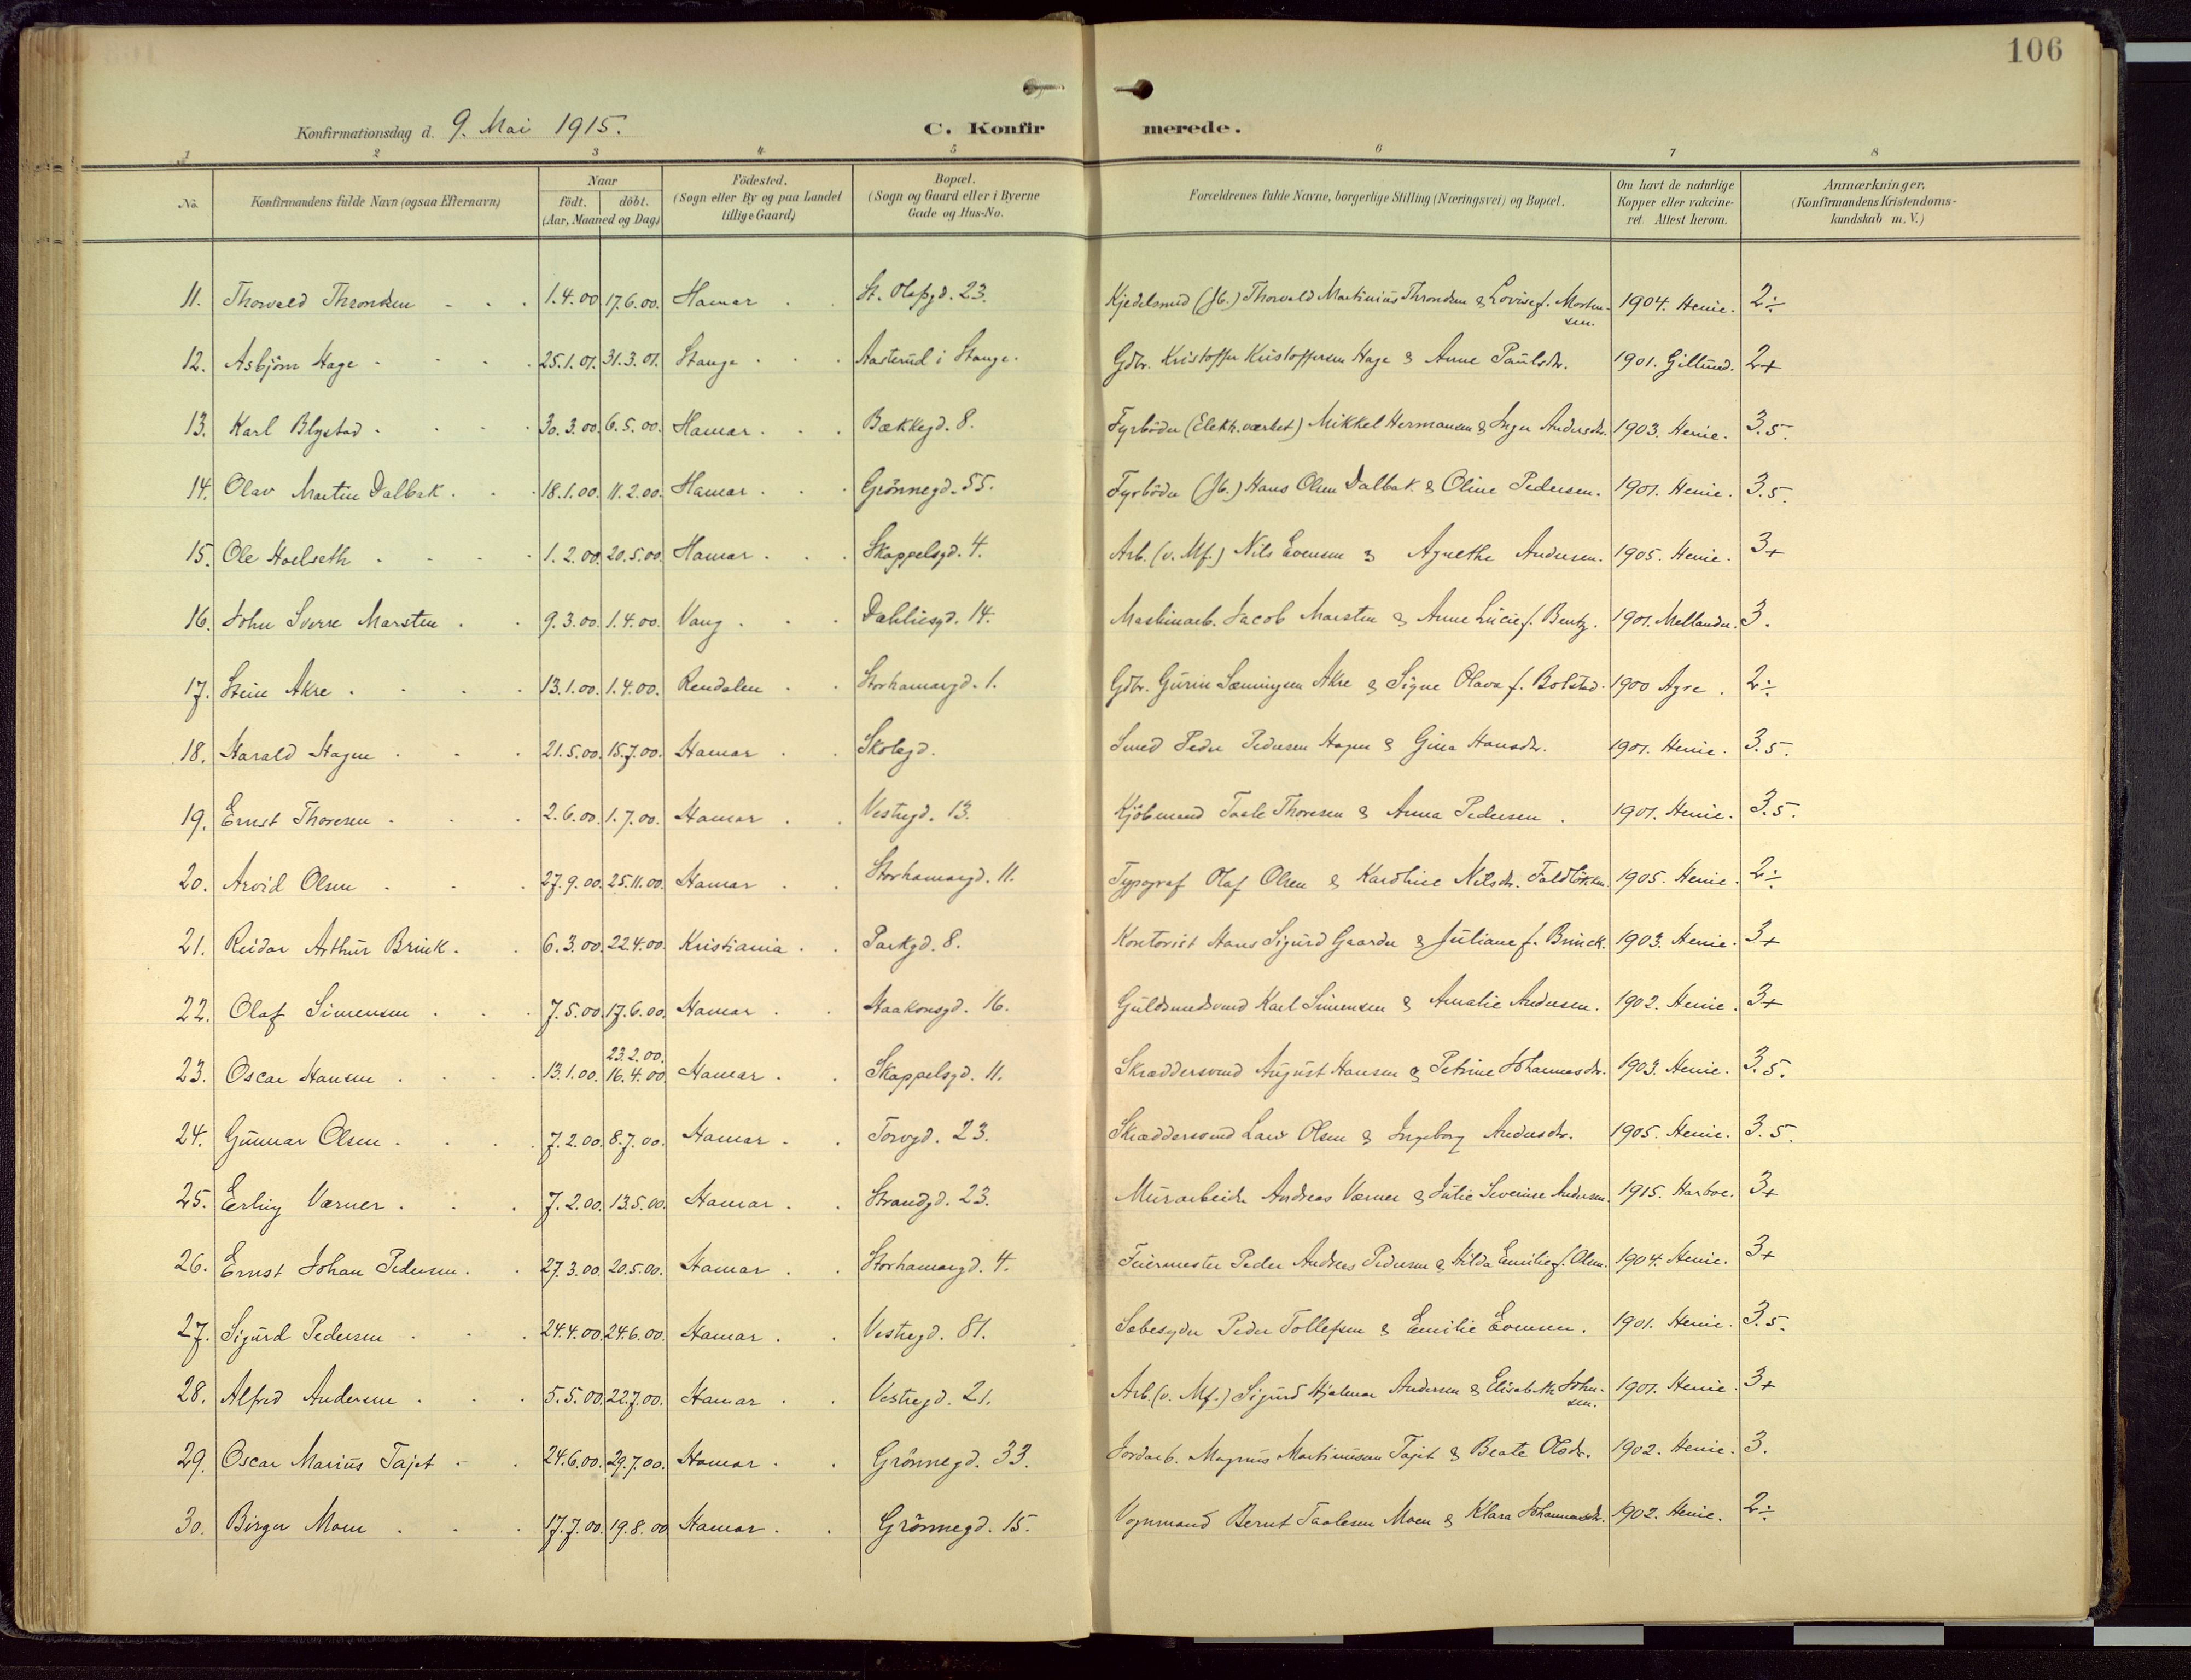 106
Konfirmationsdag d. 9. Mai 1915. C. Konfirmerede.
1 2 3 4 5 6 7 8
No. Konfirmandens fulde Navn (ogsaa Efternavn) Naar födt. döbt. (Aar, Maaned og Dag) Födested. (Sogn eller By og paa Landet tillige Gaard) Bopæl. (Sogn og Gaard eller i Byerne Gade og Hus-No. Forældrenes fulde Navne, borgerlige Stilling (Næringsvei) og Bopæl. Om havt de naturlige Kopper eller vakcineret. Attest herom. Anmærkninger. (Konfirmandens Kristendomskundskab m. V.)
11. Thorvald Throndsen 1.4.00 17.6.00. Hamar St. Olafsgd. 23. Kjedelsmed (Jb.) Thorvald Martinius Throndsen & Lovise f. Mortensen. 1904. Henie. 2÷
12. Asbjörn Hage 25.1.01. 31.3.01. Stange Aasterud i Stange. Gdbr. Kristoffer Kristoffersen Hage & Anne Paulsdr. 1901. Gillund. 2+
13. Karl Blystad 30.3.00. 6.5.00. Hamar Bækkegd. 8. Fyrböder (Elektr.værket) Mikkel Hermansen & Inger Andersdr. 1903. Henie. 3.5.
14. Olav Martin Dalbak 18.1.00. 11.2.00. Hamar Grönnegd. 55. Fyrböder (Jb.) Hans Olsen Dalbak & Oline Pedersen. 1901. Henie. 3.5.
15. Ole Hoelseth 1.2.00. 20.5.00. Hamar Skappelsgd. 4. Arb. (v. Mf.) Nils Evensen & Agnethe Andersen. 1905. Henie. 3+
16. John Sverre Marsten 9.3.00. 1.4.00. Vang Dahliesgd. 14. Maskinarb. Jacob Marsten & Anne Lucie f. Bentz. 1901. Mellander. 3.
17. Stein Akre 13.1.00. 1.4.00. Rendalen Storhamargd. 1. Gdbr. Gurin Sæmingsen Akre & Signe Olava f. Bolstad. 1900 Agre. 2÷
18. Harald Hagen 21.5.00. 15.7.00. Hamar Skolegd. Smed Peder Pedersen Hagen & Gina Hansdr. 1901. Henie. 3.5.
19. Ernst Thoresen 2.6.00. 1.7.00. Hamar Vestregd. 13. Kjöbmand Tarle Thoresen & Anna Pedersen. 1901. Henie. 3.5.
20. Arvid Olsen 27.9.00. 25.11.00. Hamar Storhamargd. 11. Typograf Olaf Olsen & Karoline Nilsdr. 1905. Henie. 2÷
21. Reidar Arthur Brinck. 6.3.00 22.4.00. Kristiania Parkgd. 8. Kontorist Hans Sigurd Gaarder & Juliane f. Brinck. 1903. Henie. 3+
22. Olaf Simensen 7.5.00. 17.6.00. Hamar Haakonsgd. 16. Guldsmedsvend Karl Simensen & Amalie Andersen. 1902. Henie. 3+
23. Oscar Hansen 13.1.00. 23.2.00. 16.4.00 Hamar Skappelsgd. 11. Skræddersvend August Hansen & Petrine Johannesdr. 1903. Henie. 3.5.
24. Gunnar Olsen 7.2.00. 8.7.00. Hamar Torvgd. 23. Skræddersvend Laur. Olsen & Ingeborg Andersdr. 1905. Henie. 3.5.
25. Erling Værner 7.2.00. 13.5.00. Hamar Strandgd. 23. Murarbeider Andreas Værner & Julie Severine Andersen. 1915. Harboe. 3+
26. Ernst Johan Pedersen. 27.3.00. 20.5.00. Hamar Storhamargd. 4. Feiermester Peder Andreas Pedersen & Hilda Emilie f. Olsen. 1904. Henie. 3+
27. Sigurd Pedersen 24.4.00. 24.6.00. Hamar Vestregd. 81. Sæbesyder Peder Tollefsen & Emilie Evensen. 1901. Henie. 3.5.
28. Alfred Andersen 5.5.00. 22.7.00. Hamar Vestregd. 21. Arb. (v. Mf.) Sigurd Hjalmar Andersen & Elisabeth Johnsen. 1901. Henie. 3+
29. Oscar Marius Tajet 24.6.00. 29.7.00. Hamar Grönnegd. 33. Jordarb. Magnus Martinussen Tajet & Beate Olsdr. 1902. Henie. 3.
30. Birger Moen 17.7.00. 19.8.00 Hamar Grönnegd. 15. Vognmand Bernt Taalesen Moen & Klara Johannesdr. 1902. Henie. 2÷